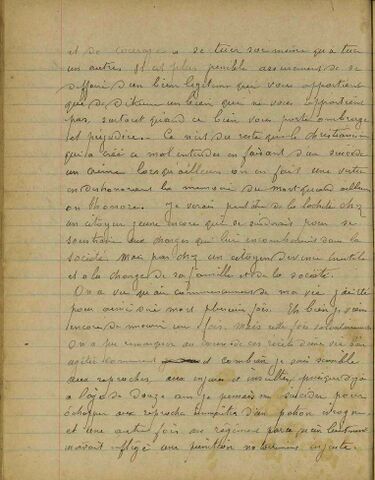 et de courage à se tuer soi même qu'à tuer
un autre. Il est plus penible assurement de se
défaire d'un bien legitime qui vous appartient
que de détruire un bien qui ne vous appartient
pas, surtout quand ce bien vous porte ombrage
et préjudice. Ce n'est du reste que le christianisme
qui a créé ce mal entendu en faisant d'un suicide
un crime lorsqu'ailleurs on en fait une vertu
en deshonorant la memoire du mort quand ailleurs
on l'honore. Je verrai peut être de la lacheté chez
un citoyen jeune encore qui se suiciderait pour se
soustraire aux charges qui lui incombent dans la
société mais pas chez un citoyen devenu inutile
et a la charge de sa famille et de la société.
On a vu qu'au commencement de ma vie j'ai été
pour ainsi dire mort plusieurs fois. Eh bien je vais
encore de mourir une fois, mais cette fois volontairement
On a pu remarquer au cours de ces recits dans ma vie bien
agitée et combien je suis sensible
aux reproches, aux injures et insultes puisque déjà
a l'age de douze ans je pensais me suicider pour
échapper aux reproches d'un patron ivrogne
et une autre fois au régiment parce qu'un lieutenant
m'avait infligé une punition notoirement injuste.